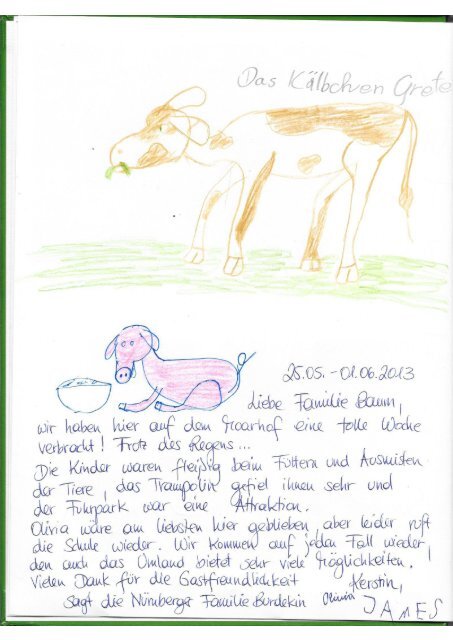 Das Kälbchen Grete
25.05. - 01.06.2013
Liebe Familie Baum,
wir haben hier auf dem Haarhof eine tolle Woche
verbracht! Trotz des Regens...
Die Kinder waren fleißig beim Füttern und Ausmisten
der Tiere, das Trampolin gefiel ihnen sehr und
der Fuhrpark war eine Attraktion.
Olivia wäre am liebsten hier geblieben, aber leider ruft
die Schule wieder. Wir kommen auf jeden Fall wieder,
den auch das Umland bietet sehr viele Möglichkeiten.
Vielen Dank für die Gastfreundlichkeit
Kerstin,
sagt die Nürnberger Familie Burdekin Olivia JAMES